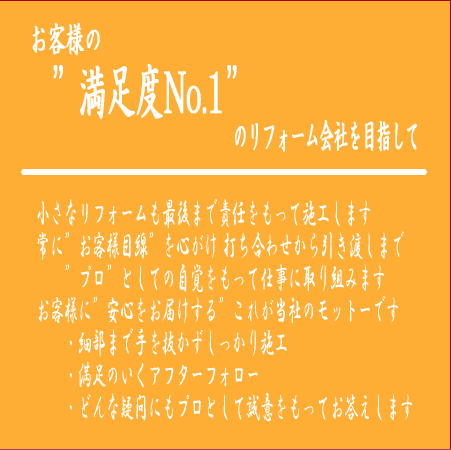 お客様の
”満足度No.1”
のリフォーム会社を目指して
小さなリフォームも最後まで責任をもって施工します
常に”お客様目線”を心がけ 打ち合わせから引き渡しまで
”プロ”としての自覚をもって仕事に取り組みます
お客様に”安心をお届けする”これが当社のモットーです
・細部まで手を抜かずしっかり施工
・満足のいくアフターフォロー
・どんな疑問にもプロとして誠意をもってお答えします